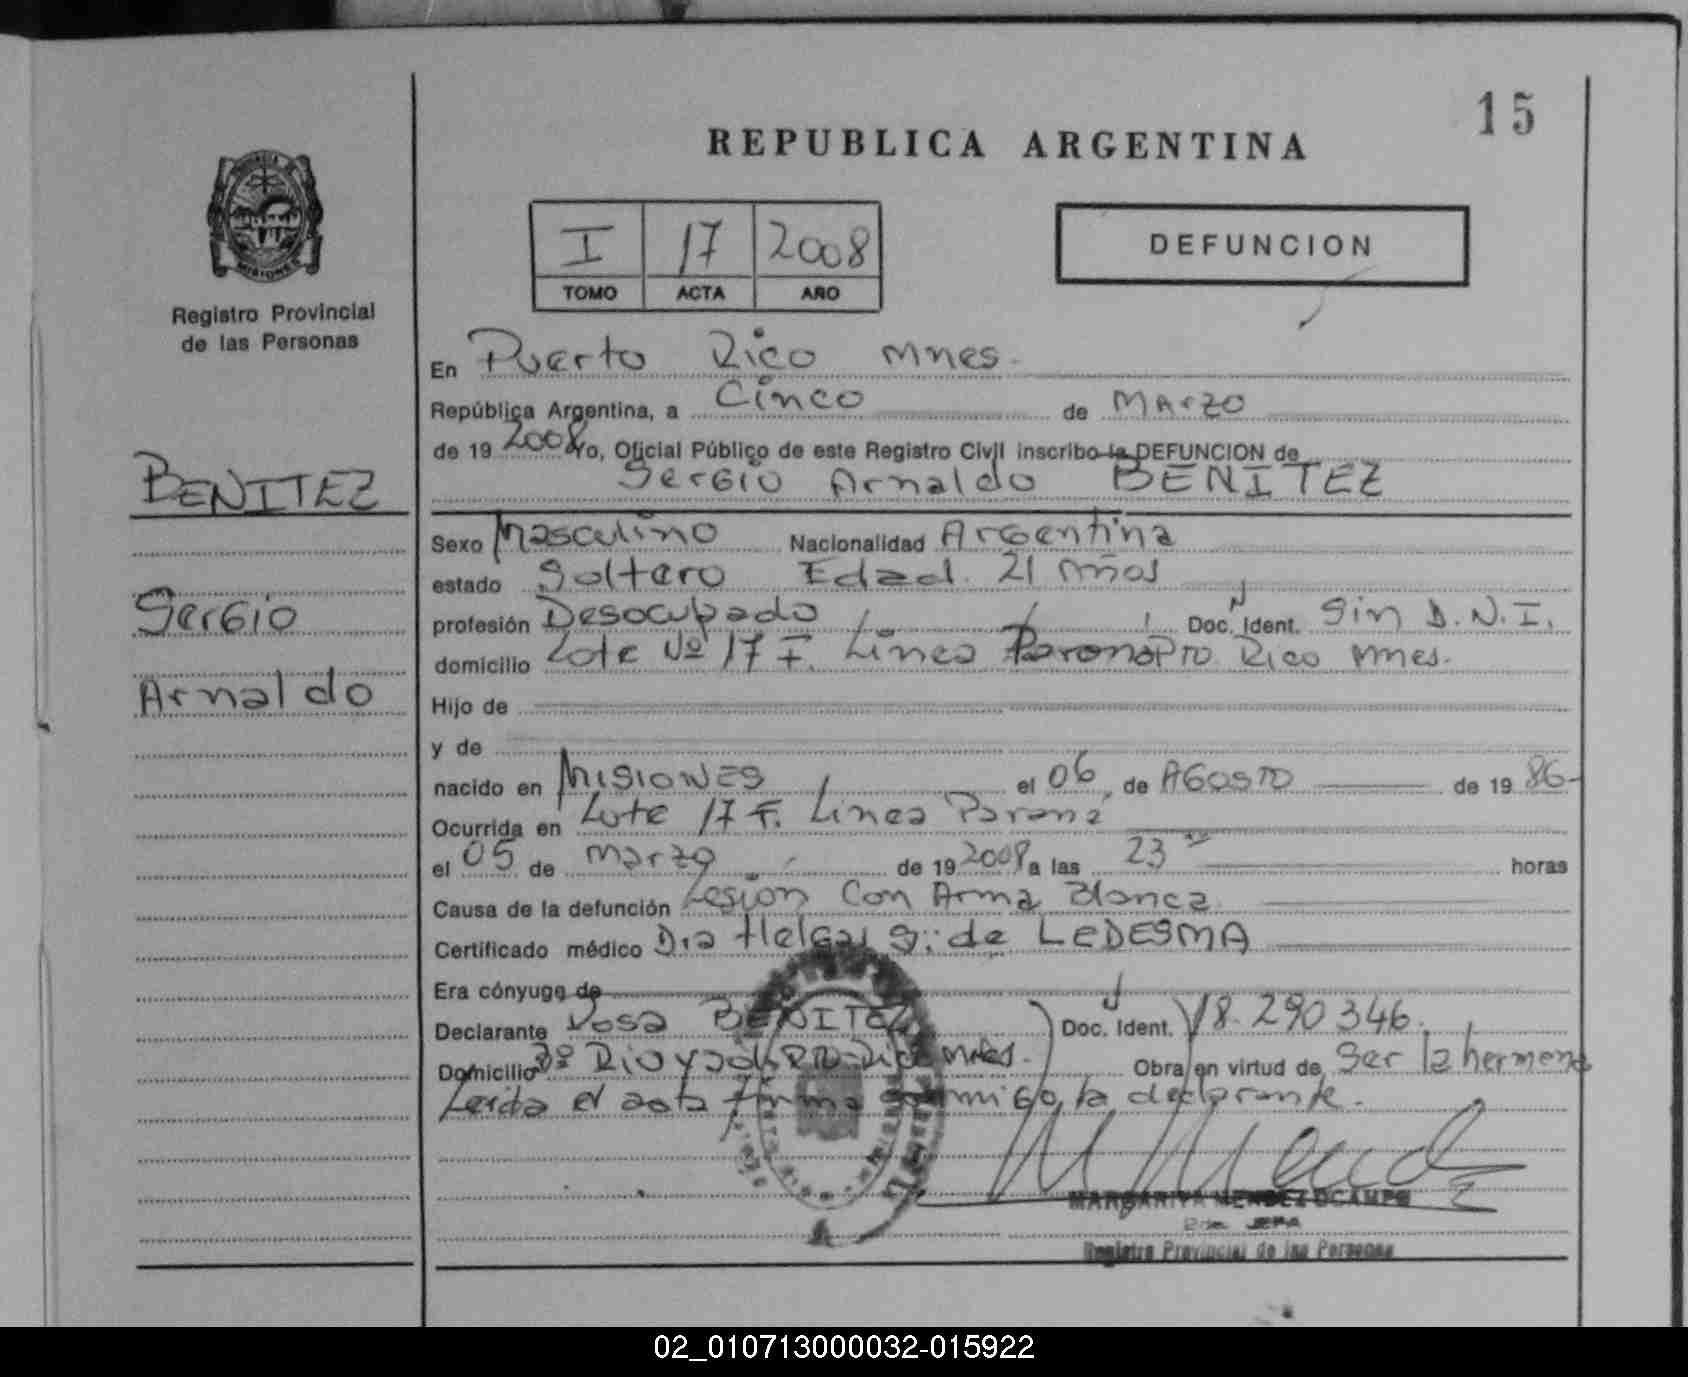 15
REPUBLICA ARGENTINA
I 17 2008
TOMO ACTA AÑO
DEFUNCION
MISIONES
Registro Provincial
de las Personas
BENITEZ
Sergio
Arnaldo
En Puerto Rico Mnes.
República Argentina, a Cinco de Marzo
de 19 2008 Yo, Oficial Público de este Registro Civil inscribo la DEFUNCION de
Sergio Arnaldo BENITEZ
Sexo Masculino Nacionalidad Argentina
estado Soltero Edad. 21 Años
profesión Desocupado Doc. Ident. Sin D.N.I.
domicilio Lote Nº 17 F. Linea Parana Pto. Rico Mnes.
Hijo de
y de
nacido en MISIONES el 06 de AGOSTO de 19 86-
Ocurrida en Lote 17 F. Linea Paraná
el 05 de Marzo de 19 2008 a las 23 horas
Causa de la defunción Lesion Con Arma Blanca
Certificado médico Dra Helga S. de LEDESMA
Era cónyuge de
Declarante Rosa BENITEZ Doc. Ident. 18.290346.
Domicilio Bº Pto. Rico Mnes. Obra en virtud de Ser la hermana
Leida el acta firma conmigo la declarante.
MARGARITA MENDEZ OCAMPO
2da JEFA
Registro Provincial de las Personas
02_010713000032-015922